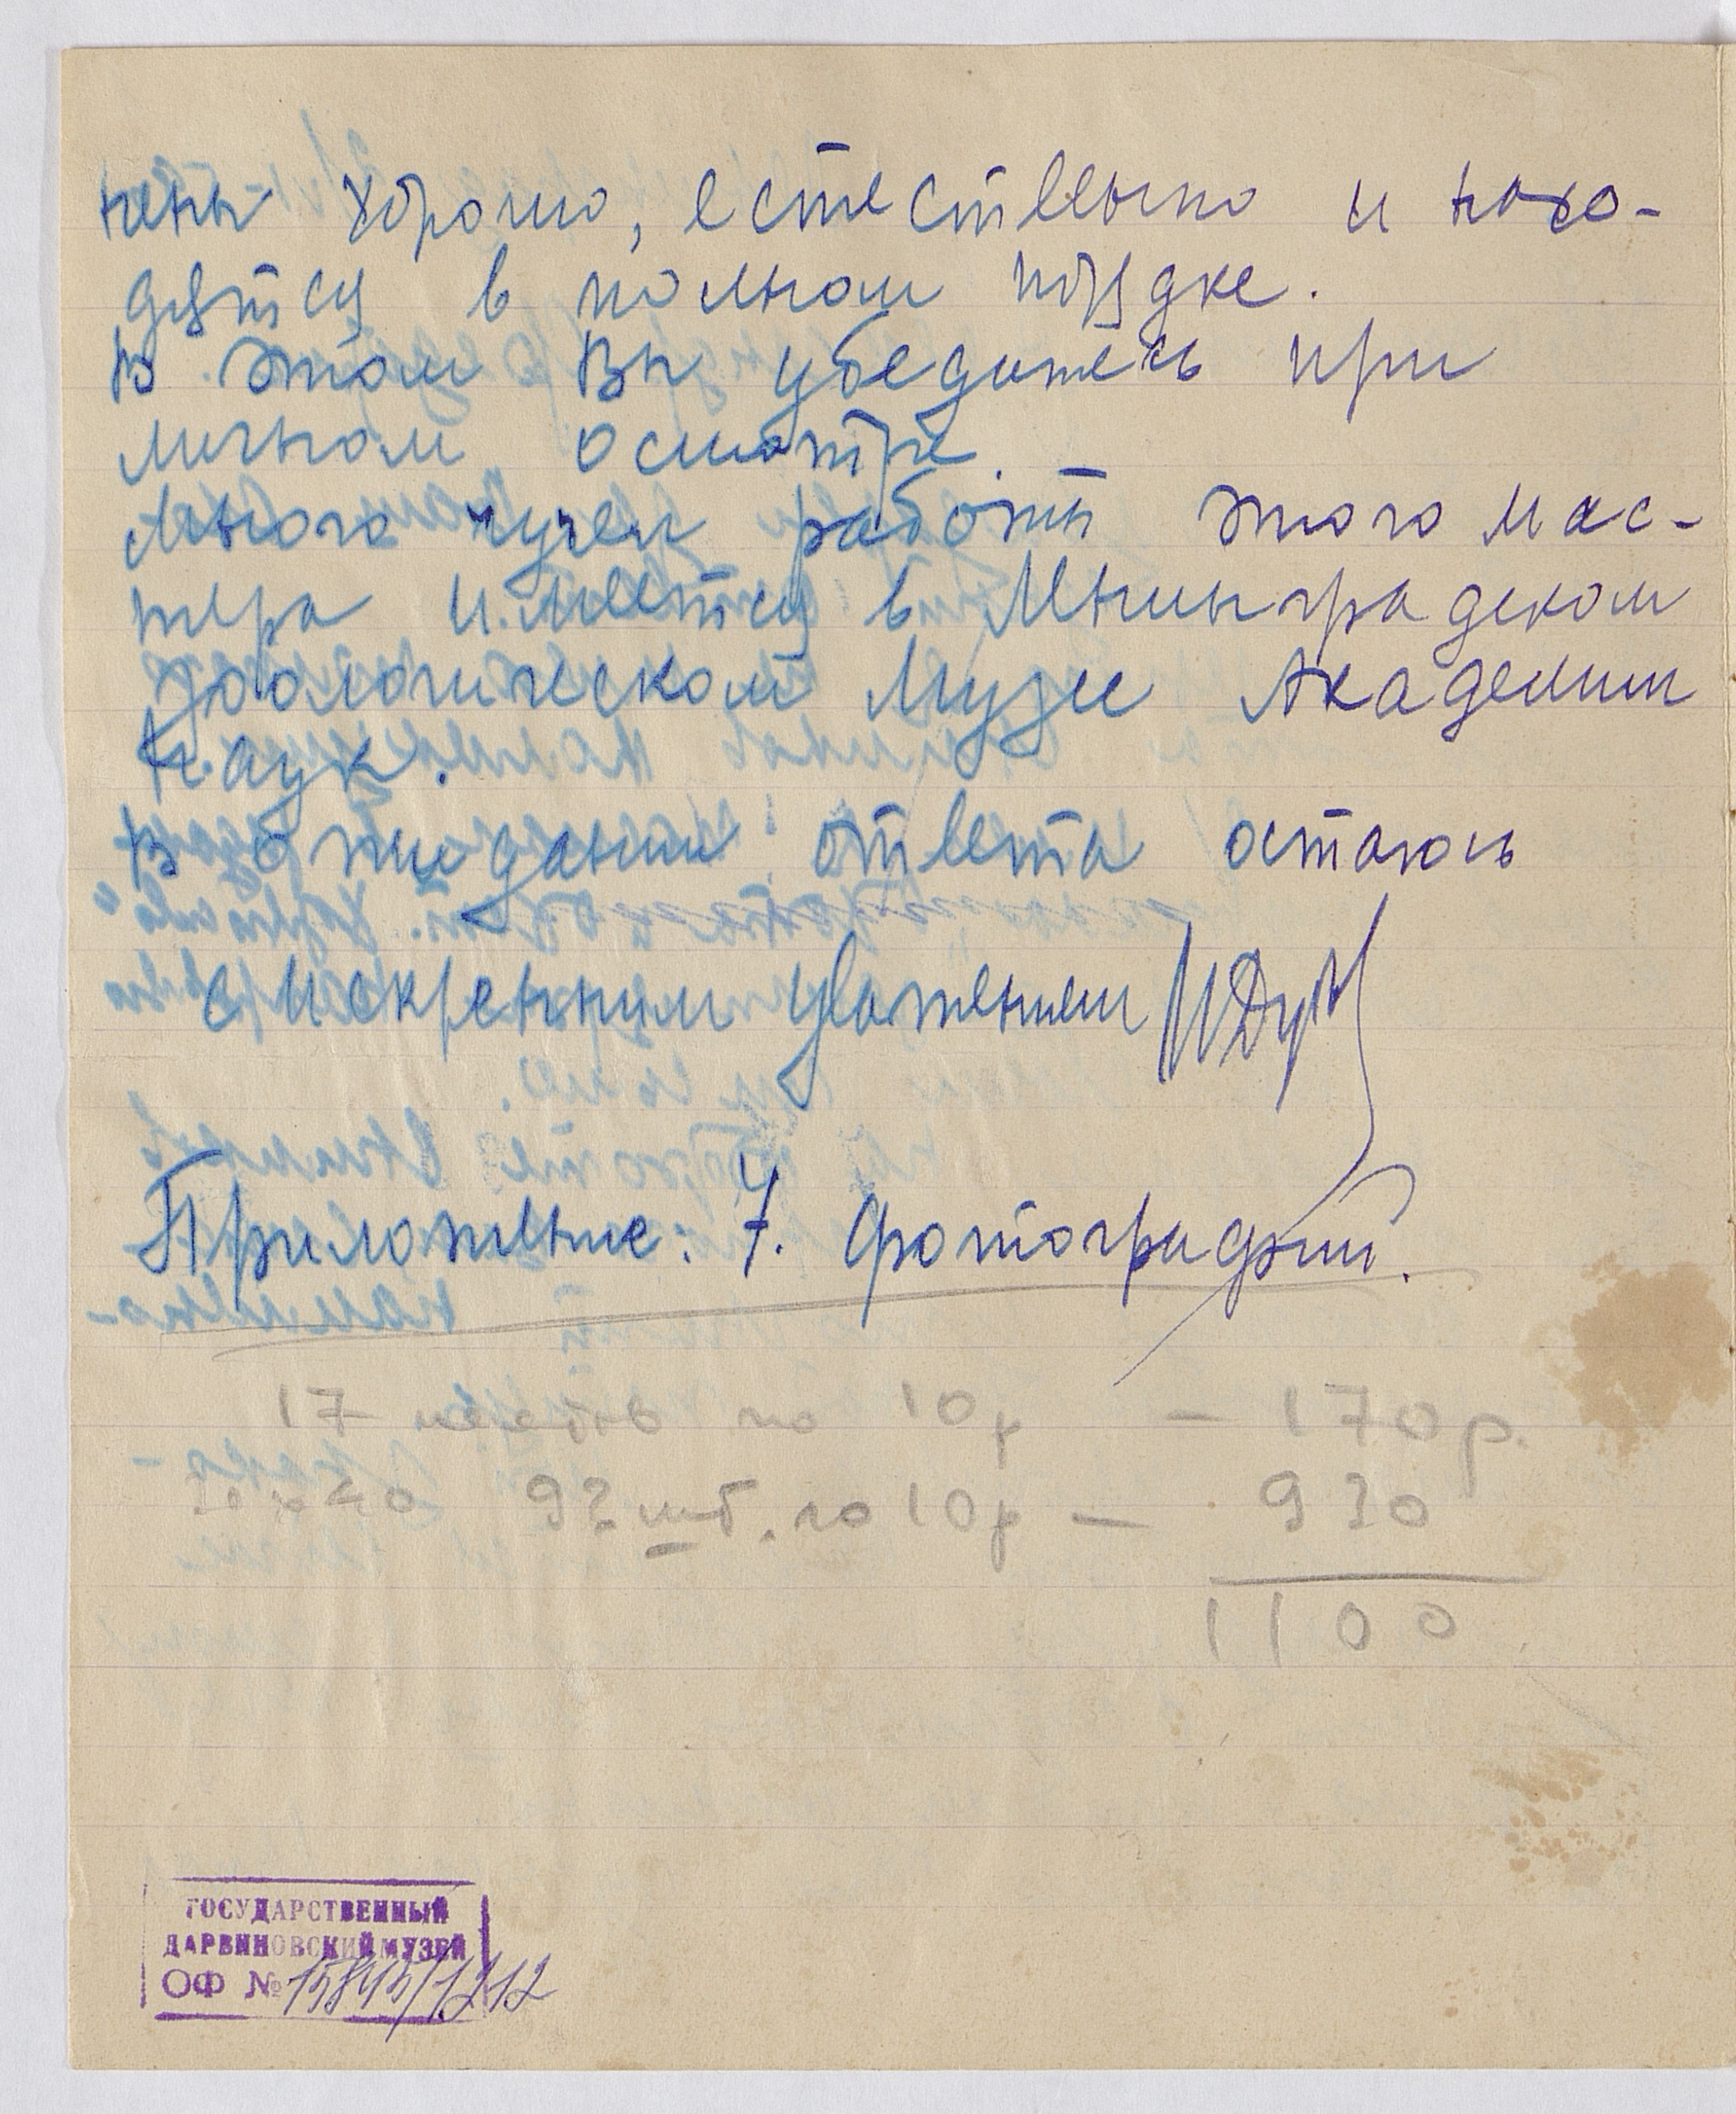 нены хорошо, естественно и нахо-
дятся в полном порядке.
В этом Вы убедитесь при
личном осмотре.
Много чучел работы этого мас-
тера имеется в Ленинградском
Зоологическом Музее Академии
Наук.
В ожидании ответа остаюсь
с искренним уважением
Приложение: 7. фотографий.
17 по 10р – 170р.
93 шт. по 10р — 930
1100
ГОСУДАРСТВЕННЫЙ
ДАРВИНОВСКИЙ МУЗЕЙ
ОФ № 15843/1212